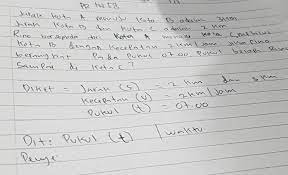 Jarak kota A menuju kota B adalah 3 km
Jarak kota B dan kota C adalah 2 km
Rino bersepeda dari kota A menuju kota C melalui
Kota B dengan kecepatan 2 km/jam jika Rino
berangkat Pada Pukul 07.00 Pukul berapa Rino
Sampai di kota C?
Diket = Jarak (s) = 2 km dan 3 km
Kecepatan (v) = 2 km/jam
Pukul (t) = 07.00
Dit: Pukul (t) / waktu
Penye